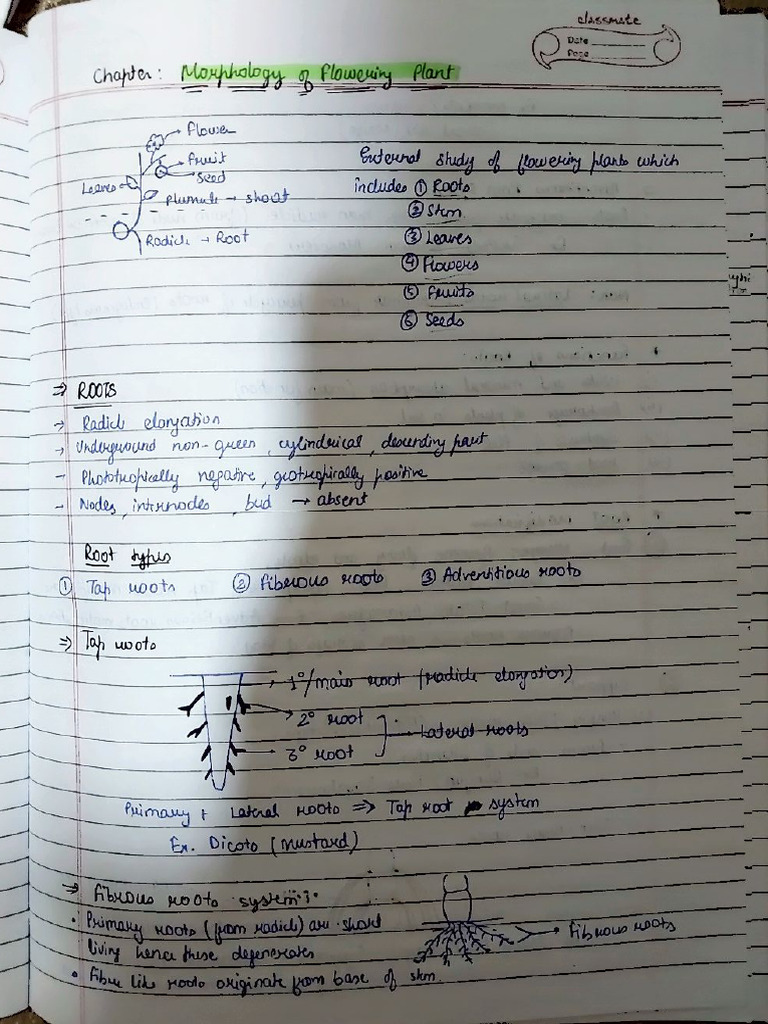 classmate
Date
Page
Chapter: Morphology of Flowering Plant
Flower
fruit
seed
Leaves
plumule → shoot
Radicle → Root
External study of flowering plants which
includes ① Roots
② Stem
③ Leaves
④ Flowers
⑤ Fruits
⑥ Seeds
⇒ ROOTS
→ Radicle elongation
→ Underground non-green, cylindrical, descending part
- Phototropically negative, geotropically positive
- Nodes, internodes, bud → absent
Root types
① Tap roots ② Fibrous roots ③ Adventitious roots
⇒ Tap roots
→ 1°/main root (radicle elongation)
→ 2° root
→ Lateral roots
→ 3° root
Primary + Lateral roots ⇒ Tap root system
Ex. Dicots (Mustard)
⇒ Fibrous roots system :
• Primary roots (from radicle) are short
living hence these degenerates
→ fibrous roots
• Fibre like roots originate from base of stem